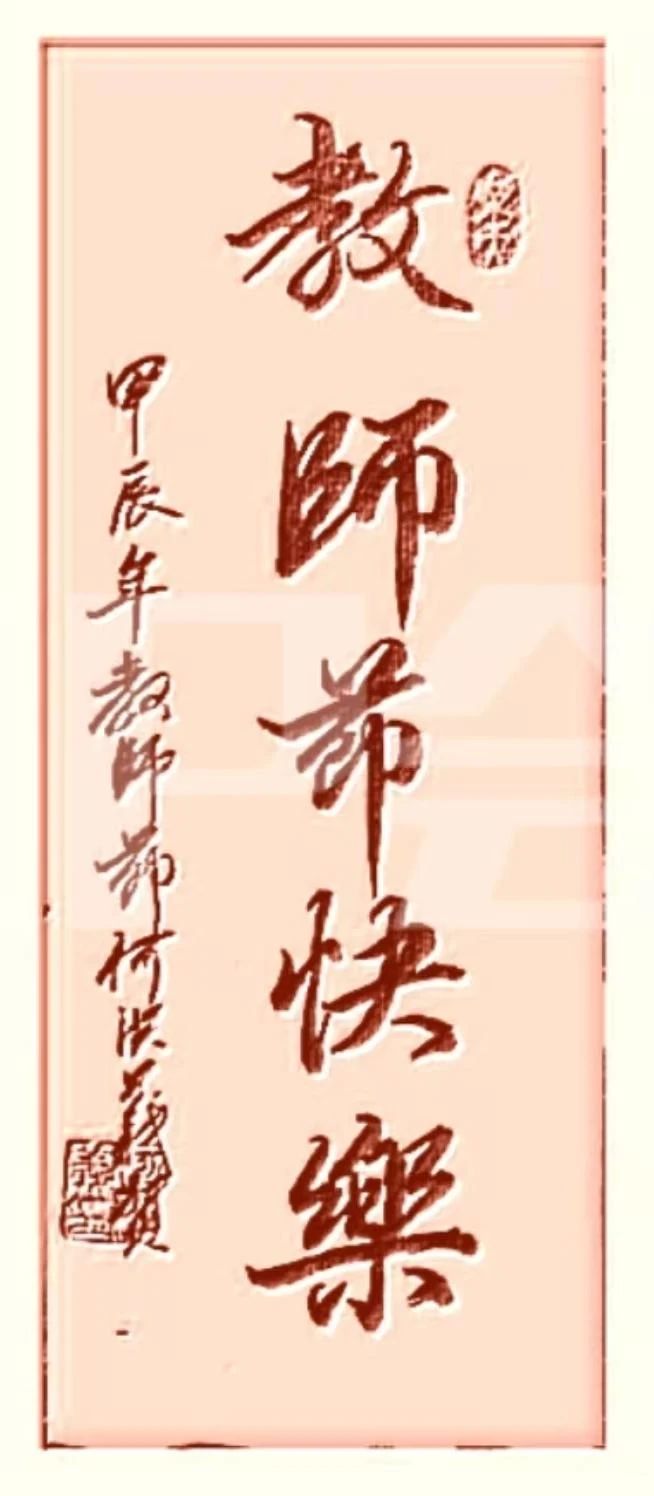 教師節快樂
甲辰年教師節何洪義賀